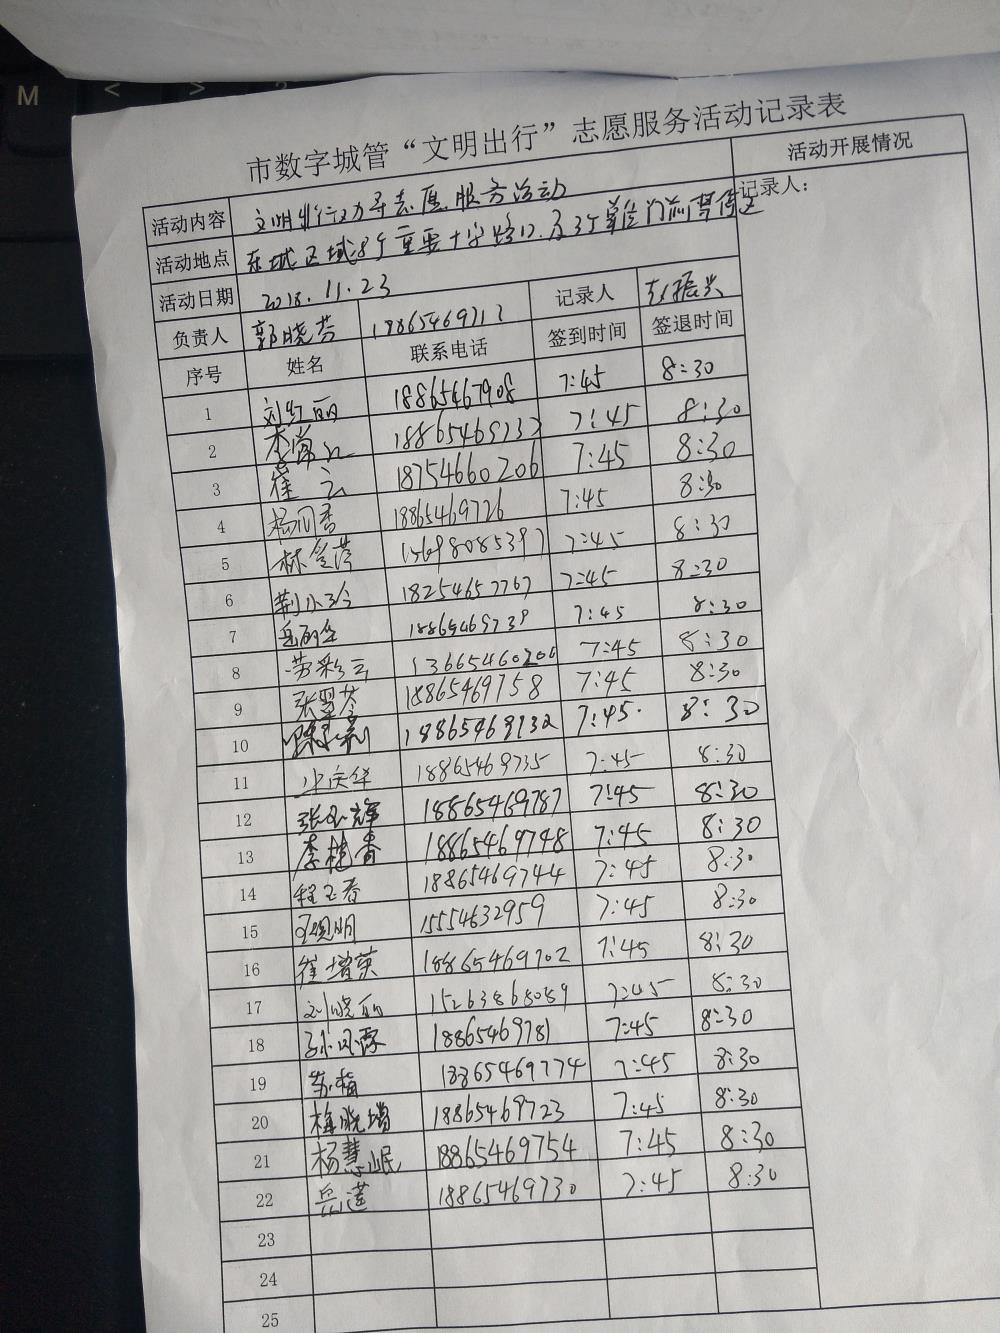 M < >
市数字城管“文明出行”志愿服务活动记录表
活动内容 文明出行劝导志愿服务活动 活动开展情况
活动地点 东城区域8个重要十字路口及3个单位门前暂停区 记录人：
活动日期 2018.11.23
负责人 郭晓芳 18865469713 记录人 振兴
序号 姓名 联系电话 签到时间 签退时间
1 刘红丽 18865467908 7:45 8:30
2 18865469737 7:45 8:30
3 崔云 18754660206 7:45 8:30
4 杨同香 18865469726 7:45 8:30
5 林 15698085397 7:45 8:30
6 荆小玲 18254657767 7:45 8:30
7 岳丽 18865469739 7:45 8:30
8 劳彩云 13665460206 7:45 8:30
9 张翠芩 18865469758 7:45 8:30
10 18865469732 7:45 8:30
11 庆华 18865469735 7:45 8:30
12 张玉辉 18865469787 7:45 8:30
13 李桂香 18865469748 7:45 8:30
14 程玉春 18865469744 7:45 8:30
15 15554632959 7:45 8:30
16 崔增英 18865469702 7:45 8:30
17 刘晓丽 15263868089 7:45 8:30
18 孙凤霞 18865469781 7:45 8:30
19 苏梅 18865469774 7:45 8:30
20 梅晓瑞 18865469723 7:45 8:30
21 杨慧岷 18865469754 7:45 8:30
22 岳莲 18865469730 7:45 8:30
23
24
25